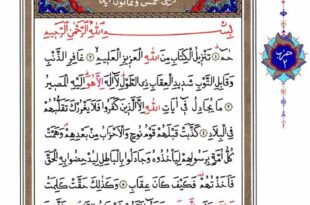 مكية خمس وثمانون آية
بِسْمِ اللَّهِ الرَّحْمَٰنِ الرَّحِيمِ
حم تَنْزِيلُ الْكِتَابِ مِنَ اللَّهِ الْعَزِيزِ الْعَلِيمِ غَافِرِ الذَّنْبِ
وَقَابِلِ التَّوْبِ شَدِيدِ الْعِقَابِ ذِي الطَّوْلِ لَا إِلَٰهَ إِلَّا هُوَ إِلَيْهِ الْمَصِيرُ
مَا يُجَادِلُ فِي آيَاتِ اللَّهِ إِلَّا الَّذِينَ كَفَرُوا فَلَا يَغْرُرْكَ تَقَلُّبُهُمْ
فِي الْبِلَادِ كَذَّبَتْ قَبْلَهُمْ قَوْمُ نُوحٍ وَالْأَحْزَابُ مِنْ بَعْدِهِمْ وَهَمَّتْ
كُلُّ أُمَّةٍ بِرَسُولِهِمْ لِيَأْخُذُوهُ وَجَادَلُوا بِالْبَاطِلِ لِيُدْحِضُوا بِهِ الْحَقَّ
فَأَخَذْتُهُمْ فَكَيْفَ كَانَ عِقَابِ وَكَذَٰلِكَ حَقَّتْ كَلِمَتُ
حزب